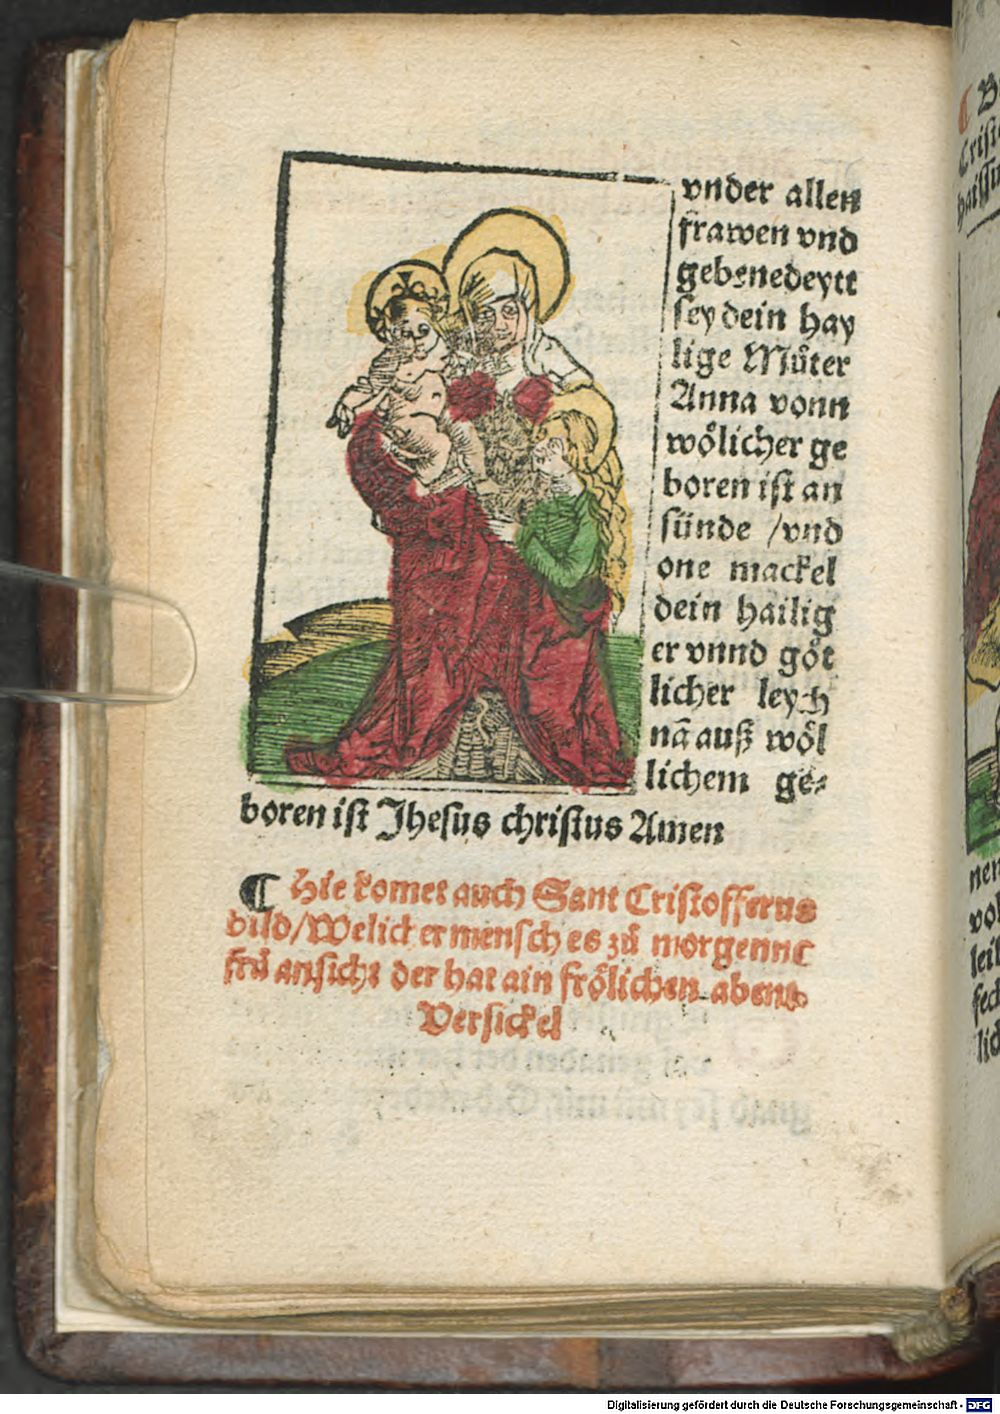 vnder allen
frawen vnd
gebenedeytt
sey dein hay
lige Můter
Anna vonn
wölicher ge
boren ist an
sünde /vnd
one mackel
dein heilig
er vnnd göt
licher leych
nā auß wöl
lichem ge⸗
boren ist Jhesus christus Amen
¶ Hie komet auch Sant Cristofferus
bild/Welicher mensch es zů morgenne
frů ansicht der hat ain frölichen abent
Versickel
Digitalisierung gefördert durch die Deutsche Forschungsgemeinschaft - DFG